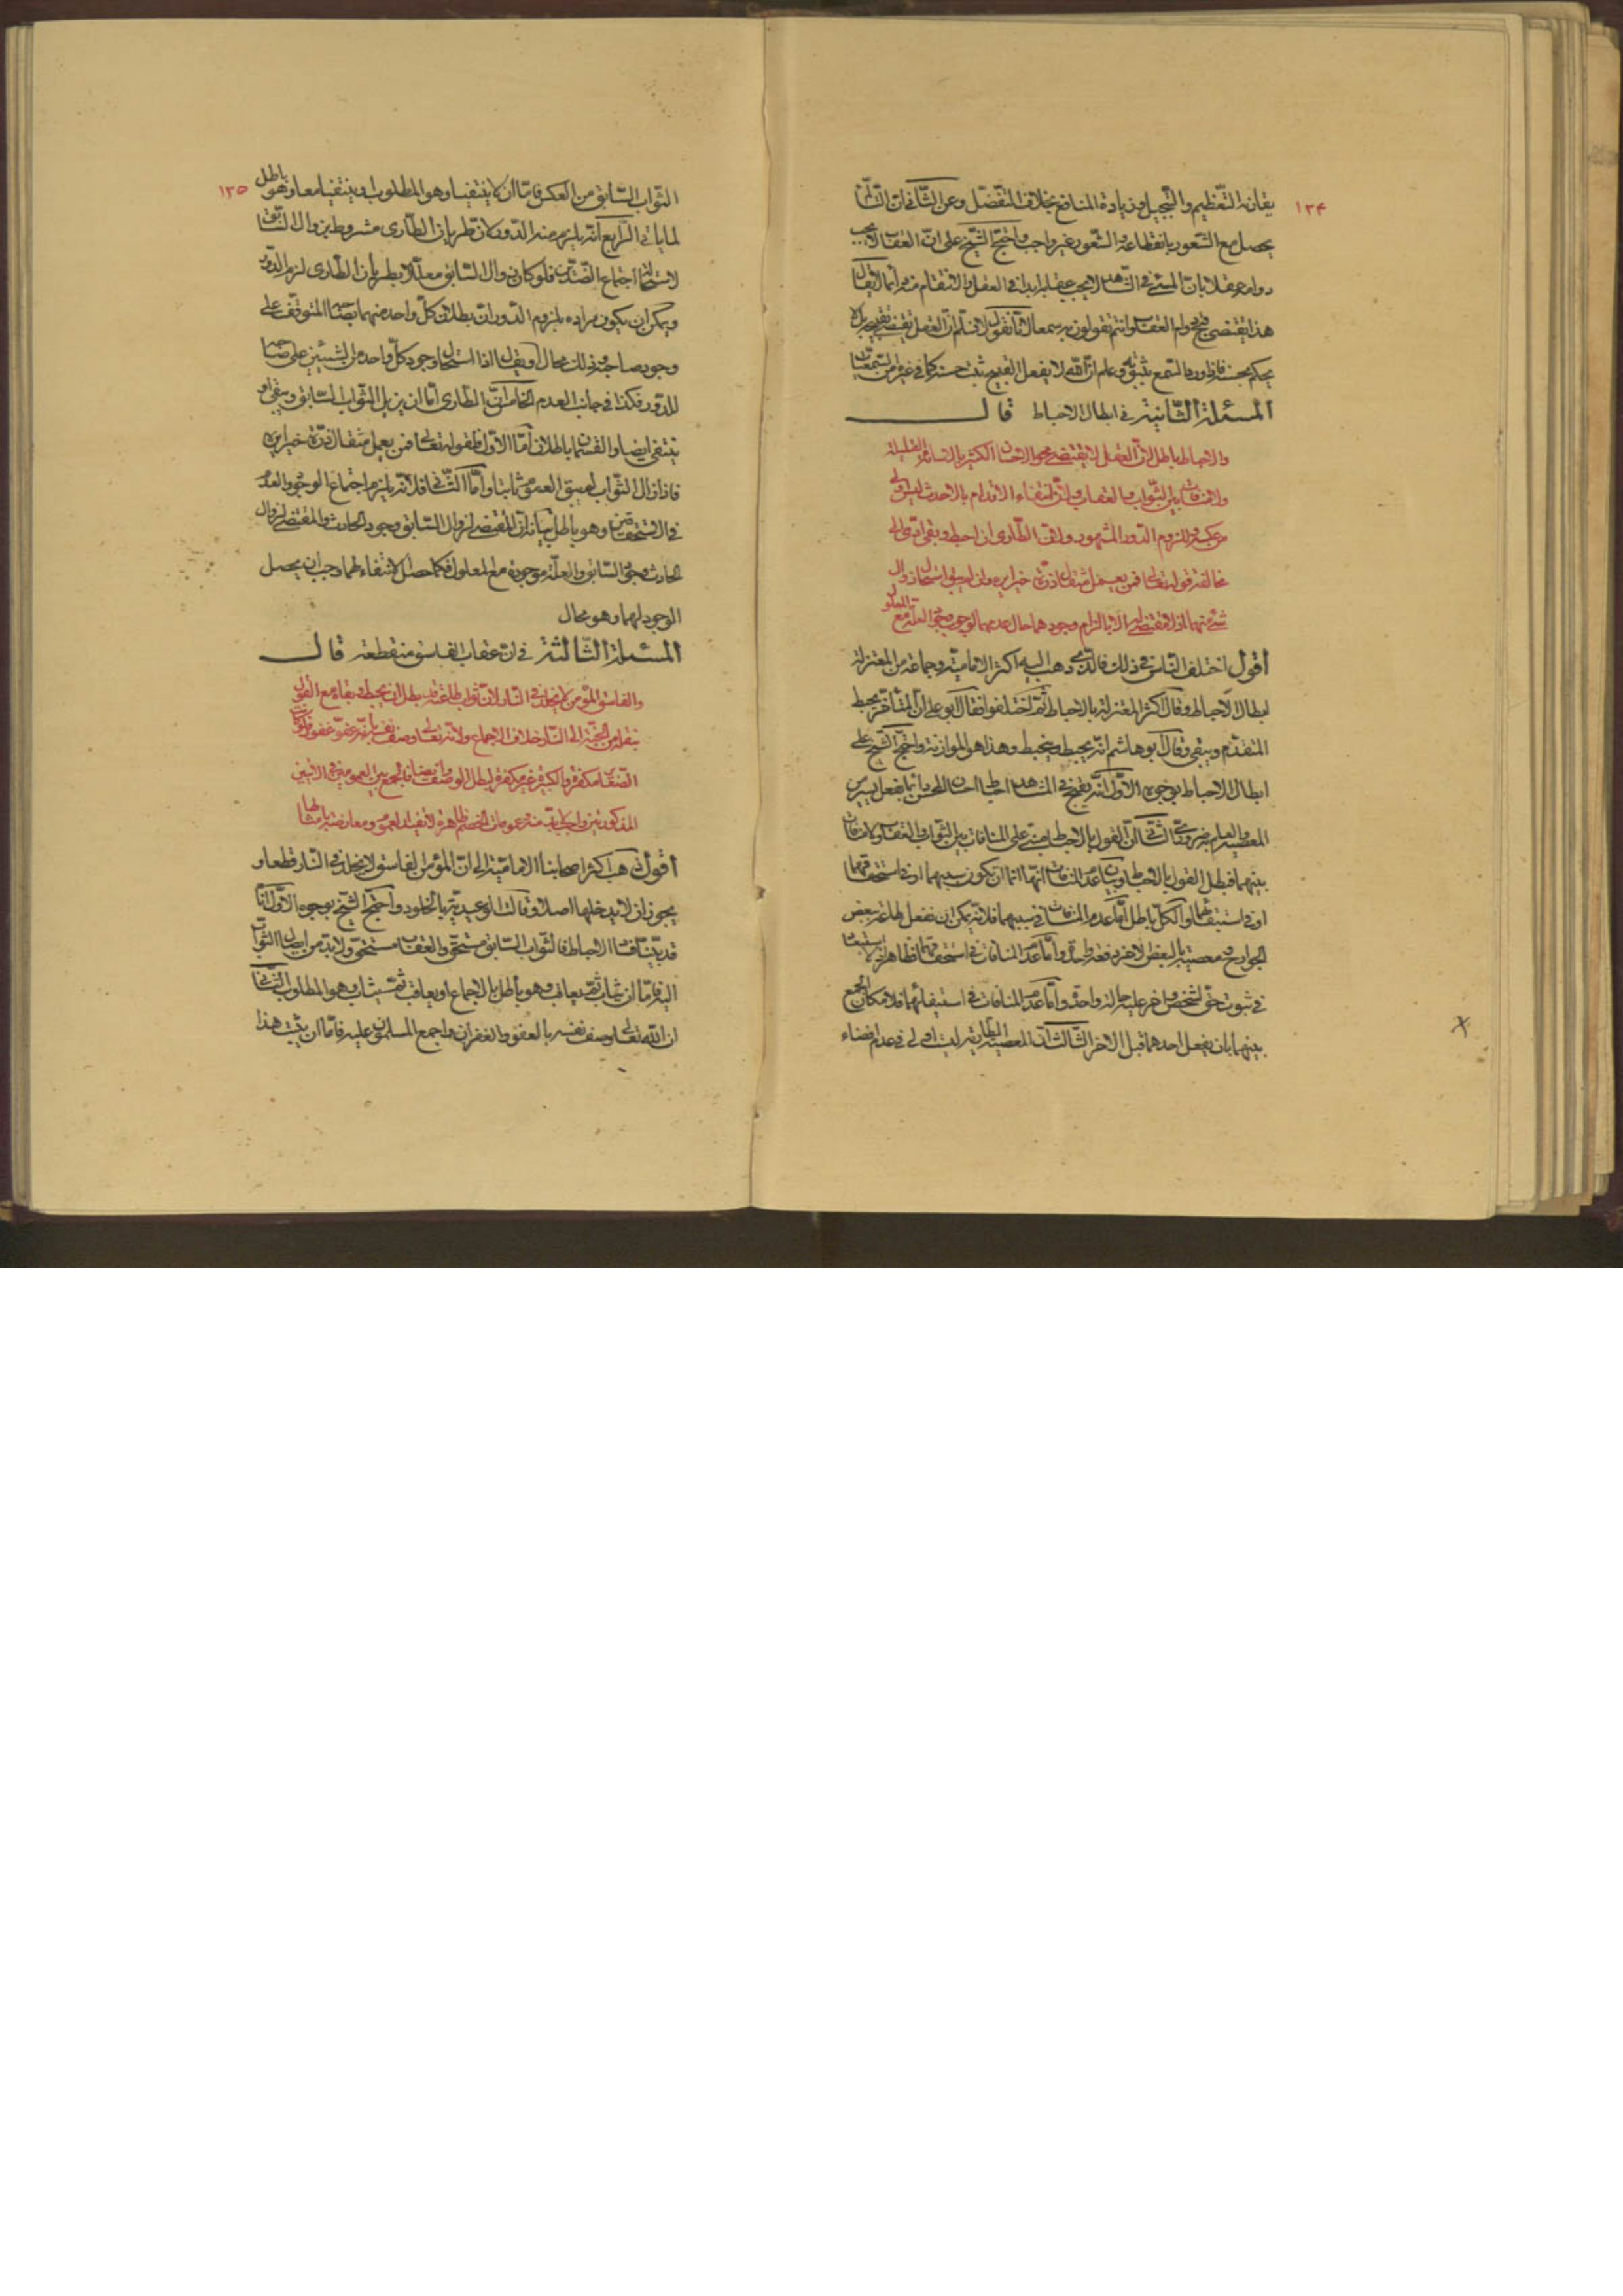 ١٣۴
يقارنه التّعظيم والتّبجيل وزيادة المنافع بخلاف التّفضّل وعن الثّانى انّ التألّم
يحصل مع الشّعور بانقطاعه والشّعور غير واجب واحتجّ الشّيخ على انّ العقاب لا يجب
دوامه عقلا بانّ المسئ فى الشّاهد لا يجب عقلا ابدا فى العقل والانتقام منه دائما لا يقال
هذا يقتضى قبح دوام العقاب وانتم تقولون به سمعا لانّا نقول لا نسلّم انّ العقل يقتضى تقبيحه بل لا
يحكم بحسنه فاذا ورد السّمع بثبوته وعلم انّ اللّه لا يفعل القبيح ثبت حسنه كما فى غيره من السّمعيّات
المسئلة الثّانية فى ابطال الاحباط قال
والاحباط باطل لانّ العقل لا يقتضى محو الاحسان الكثير بالاساءة القليلة
ولا منافاة بين الثّواب والعقاب ولانّ انتفاء الاقدام بالاحدث ليس اولى
من عكسه وللزوم الدّور المشهور ولانّ الطّارى ان احبط وبقى ادّى الى
مخالفة قوله تعالى فمن يعمل مثقال ذرّة خيرا يره وان لم يبق استحال زوال
شئ منهما اذ لا مقتضى له الّا بالزام وجودهما حال عدمهما لوجوب وجود العلّة مع المعلول
أقول اختلف النّاس فى ذلك فالّذى ذهب اليه اكثر الاماميّة وجماعة من المعتزلة
ابطال الاحباط وقال اكثر المعتزلة بالاحباط ثمّ اختلفوا فقال ابو على انّ المتأخّر يحبط
المتقدّم ويبقى وقال ابو هاشم انّه يحبط وينحبط وهذا هو الموازنة واحتجّ الشّيخ على
ابطال الاحباط بوجوه الأوّل انّه يقبح فى الشّاهد احباط احسان المحسن دائما بفعل يسير من
المعصية والعلم به ضرورىّ الثّانى انّ القول بالاحباط مبنىّ على المنافات بين الثّواب والعقاب ولا منافات
بينهما فبطل القول بالاحباط وبيان عدم المنافات انّها امّا ان تكون سببهما او فى استحقاقهما
او فى استيفائهما والكلّ باطل امّا عدم المنافات فى سببهما فلانّه يمكن ان نفعل طاعة ببعض
الجوارح ومعصية بالبعض الاخر دفعة واحدة وامّا عدم المنافات فى استحقاقهما فظاهر اذ لا استبعاد
فى ثبوت حقّ لشخص واخر عليه حالة واحدة وامّا عدم المنافات فى استيفائهما فلامكان الجمع
بينهما بان يفعل احدهما قبل الاخر الثّالث انّ المعصية الطّارية ليست اولى فى عدم افضاء
١٣٥
الثّواب السّابق من العكس فامّا ان لا ينتفيا وهو المطلوب او ينتفيا معا وهو باطل
لما ياتى الرّابع انّه يلزم منه الدّور لانّ طريان الطّارى مشروط بزوال السّابق
لاستحالة اجتماع الضّدّين فلو كان زوال السّابق معلّلا بطريان الطّارى لزم الدّور
ويمكن ان يكون مراده بلزوم الدّور انّ بطلان كلّ واحد منهما بصاحبه المتوقّف على
وجود صاحبه وذلك محال او يقال اذا استحال وجود كلّ واحد من الشّيئين على صاحبه
للدّور فكذا فى جانب العدم الخامس انّ الطّارى امّا ان يزيل الثّواب السّابق ويبقى او
ينتفى ايضا والقسمان باطلان أمّا الاوّل فلقوله تعالى فمن يعمل مثقال ذرّة خيرا يره
فاذا زال الثّواب لم يبق العموم ثابتا وأمّا الثّانى فلانّه يلزم اجتماع الوجود والعدم
فى المستحقّين وهو باطل بيانه انّ المقتضى لزوال السّابق وجود الحادث والمقتضى لزوال
الحادث وجود السّابق والعلّة موجودة مع المعلول فكما حصل الانتفاء لهما وجب ان يحصل
الوجود لهما وهو محال
المسئلة الثّالثة فى انّ عقاب الفاسق منقطعة قال
والفاسق المؤمن لا يخلد فى النّار لانّ ثواب طاعته بطل ان يحبط وبقاءه مع القول
بنقله من الجنّة الى النّار خلاف الاجماع ولانّه تعالى وصف نفسه بانّه عفوّ غفور فلو كانت
الصّغائر مكفرة والكبيرة غير مكفرة لبطل الوصف وايضا فالجمع بين العمومين فى الآيتين
المذكورتين واجب منه عمومات الخصم ظاهرة لا تفيد العموم ومعارضة بامثالها
أقول ذهب اكثر اصحابنا الاماميّة الى انّ المؤمن الفاسق لا يخلد فى النّار قطعا و
يجوز ان لا يدخلها اصلا وقالت الوعيديّة بالخلود واحتجّ الشّيخ بوجوه الاوّل انّا
قد بيّنّا فساد الاحباط فالثّواب السّابق مستحقّ والعقاب مستحقّ ولا بدّ من ايصال الثّواب
اليه فامّا ان يثاب ثمّ يعاقب وهو باطل بالاجماع او يعاقب ثمّ يثاب وهو المطلوب الثّانى
ان اللّه تعالى وصف نفسه بالعفو والغفران واجمع المسلمون عليه فامّا ان يثبت هذا